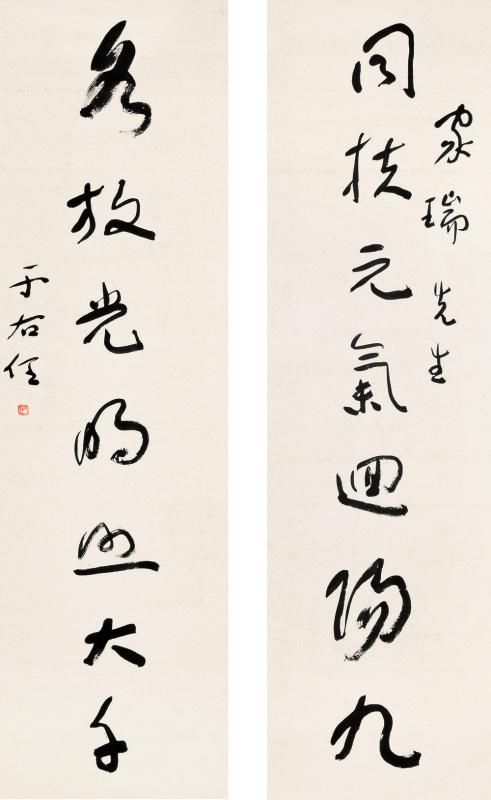 家瑞先生
同扶元氣迴陽九
各放光明照大千
于右任